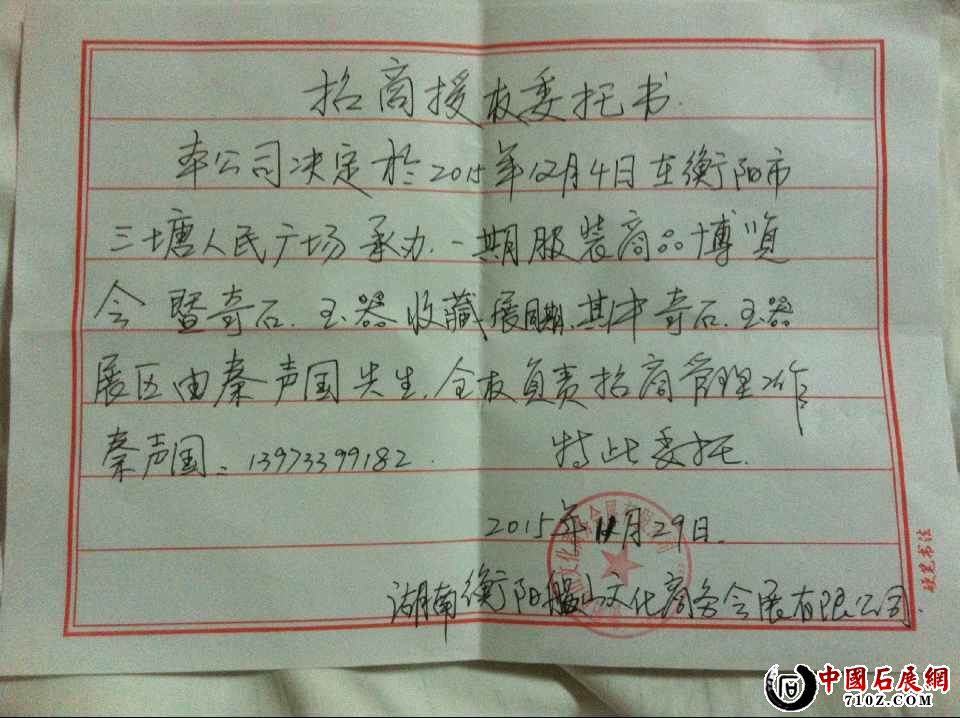 招商授权委托书
本公司决定於2015年12月4日在衡阳市
三塘人民广场承办.一期服装商品博览
会暨奇石.玉器收藏展同期.其中奇石.玉器
展区由秦声国先生.全权负责招商管理工作
秦声国: 13973399182. 特此委托.
2015年11月29日.
湖南衡阳船山文化商务会展有限公司
硬笔书法
中國石展網
710Z.COM